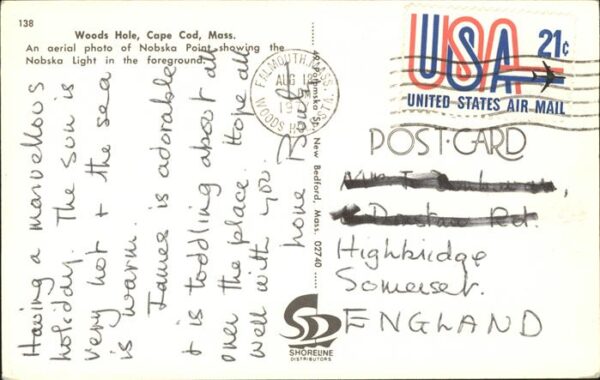 138
Woods Hole, Cape Cod, Mass.
An aerial photo of Nobska Point showing the
Nobska Light in the foreground.
Having a marvellous
holiday. The sun is
very hot + the sea
is warm.
James is adorable
+ is toddling about all
over the place. Hope all
well with you.
love
FALMOUTH, MASS.
AUG 18
WOODS HOLE STA.
St., New Bedford, Mass. 02740
SHORELINE
DISTRIBUTORS
USA 21c
UNITED STATES AIR MAIL
POST-CARD
Rd.
Highbridge
Somerset.
ENGLAND